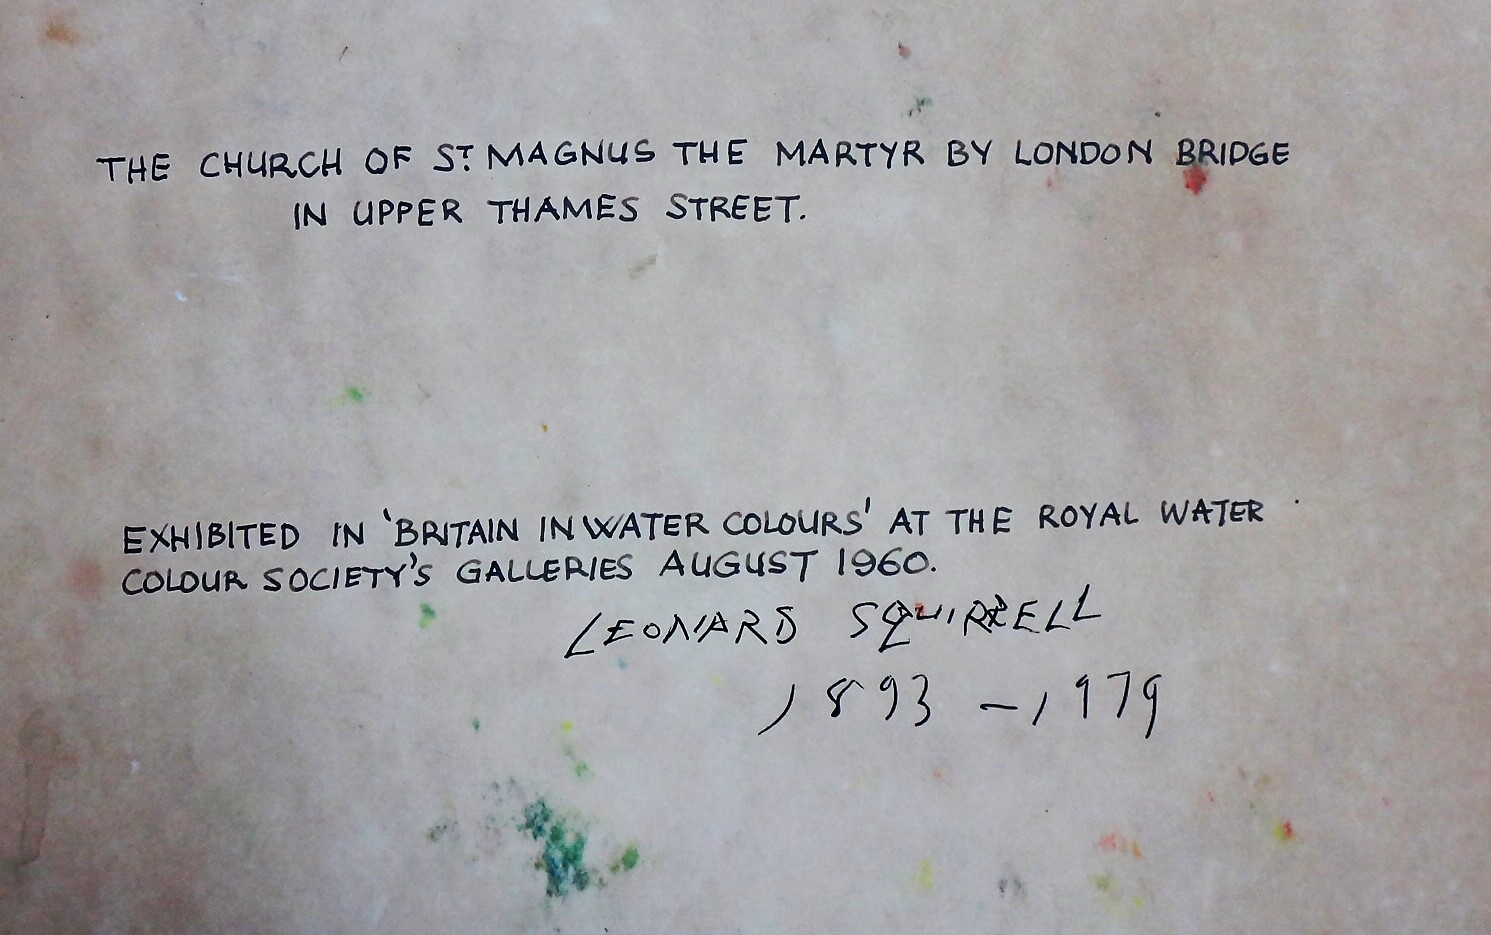 THE CHURCH OF ST. MAGNUS THE MARTYR BY LONDON BRIDGE
IN UPPER THAMES STREET.
EXHIBITED IN 'BRITAIN IN WATER COLOURS' AT THE ROYAL WATER
COLOUR SOCIETY'S GALLERIES AUGUST 1960.
LEONARD SQUIRRELL
1893 - 1979